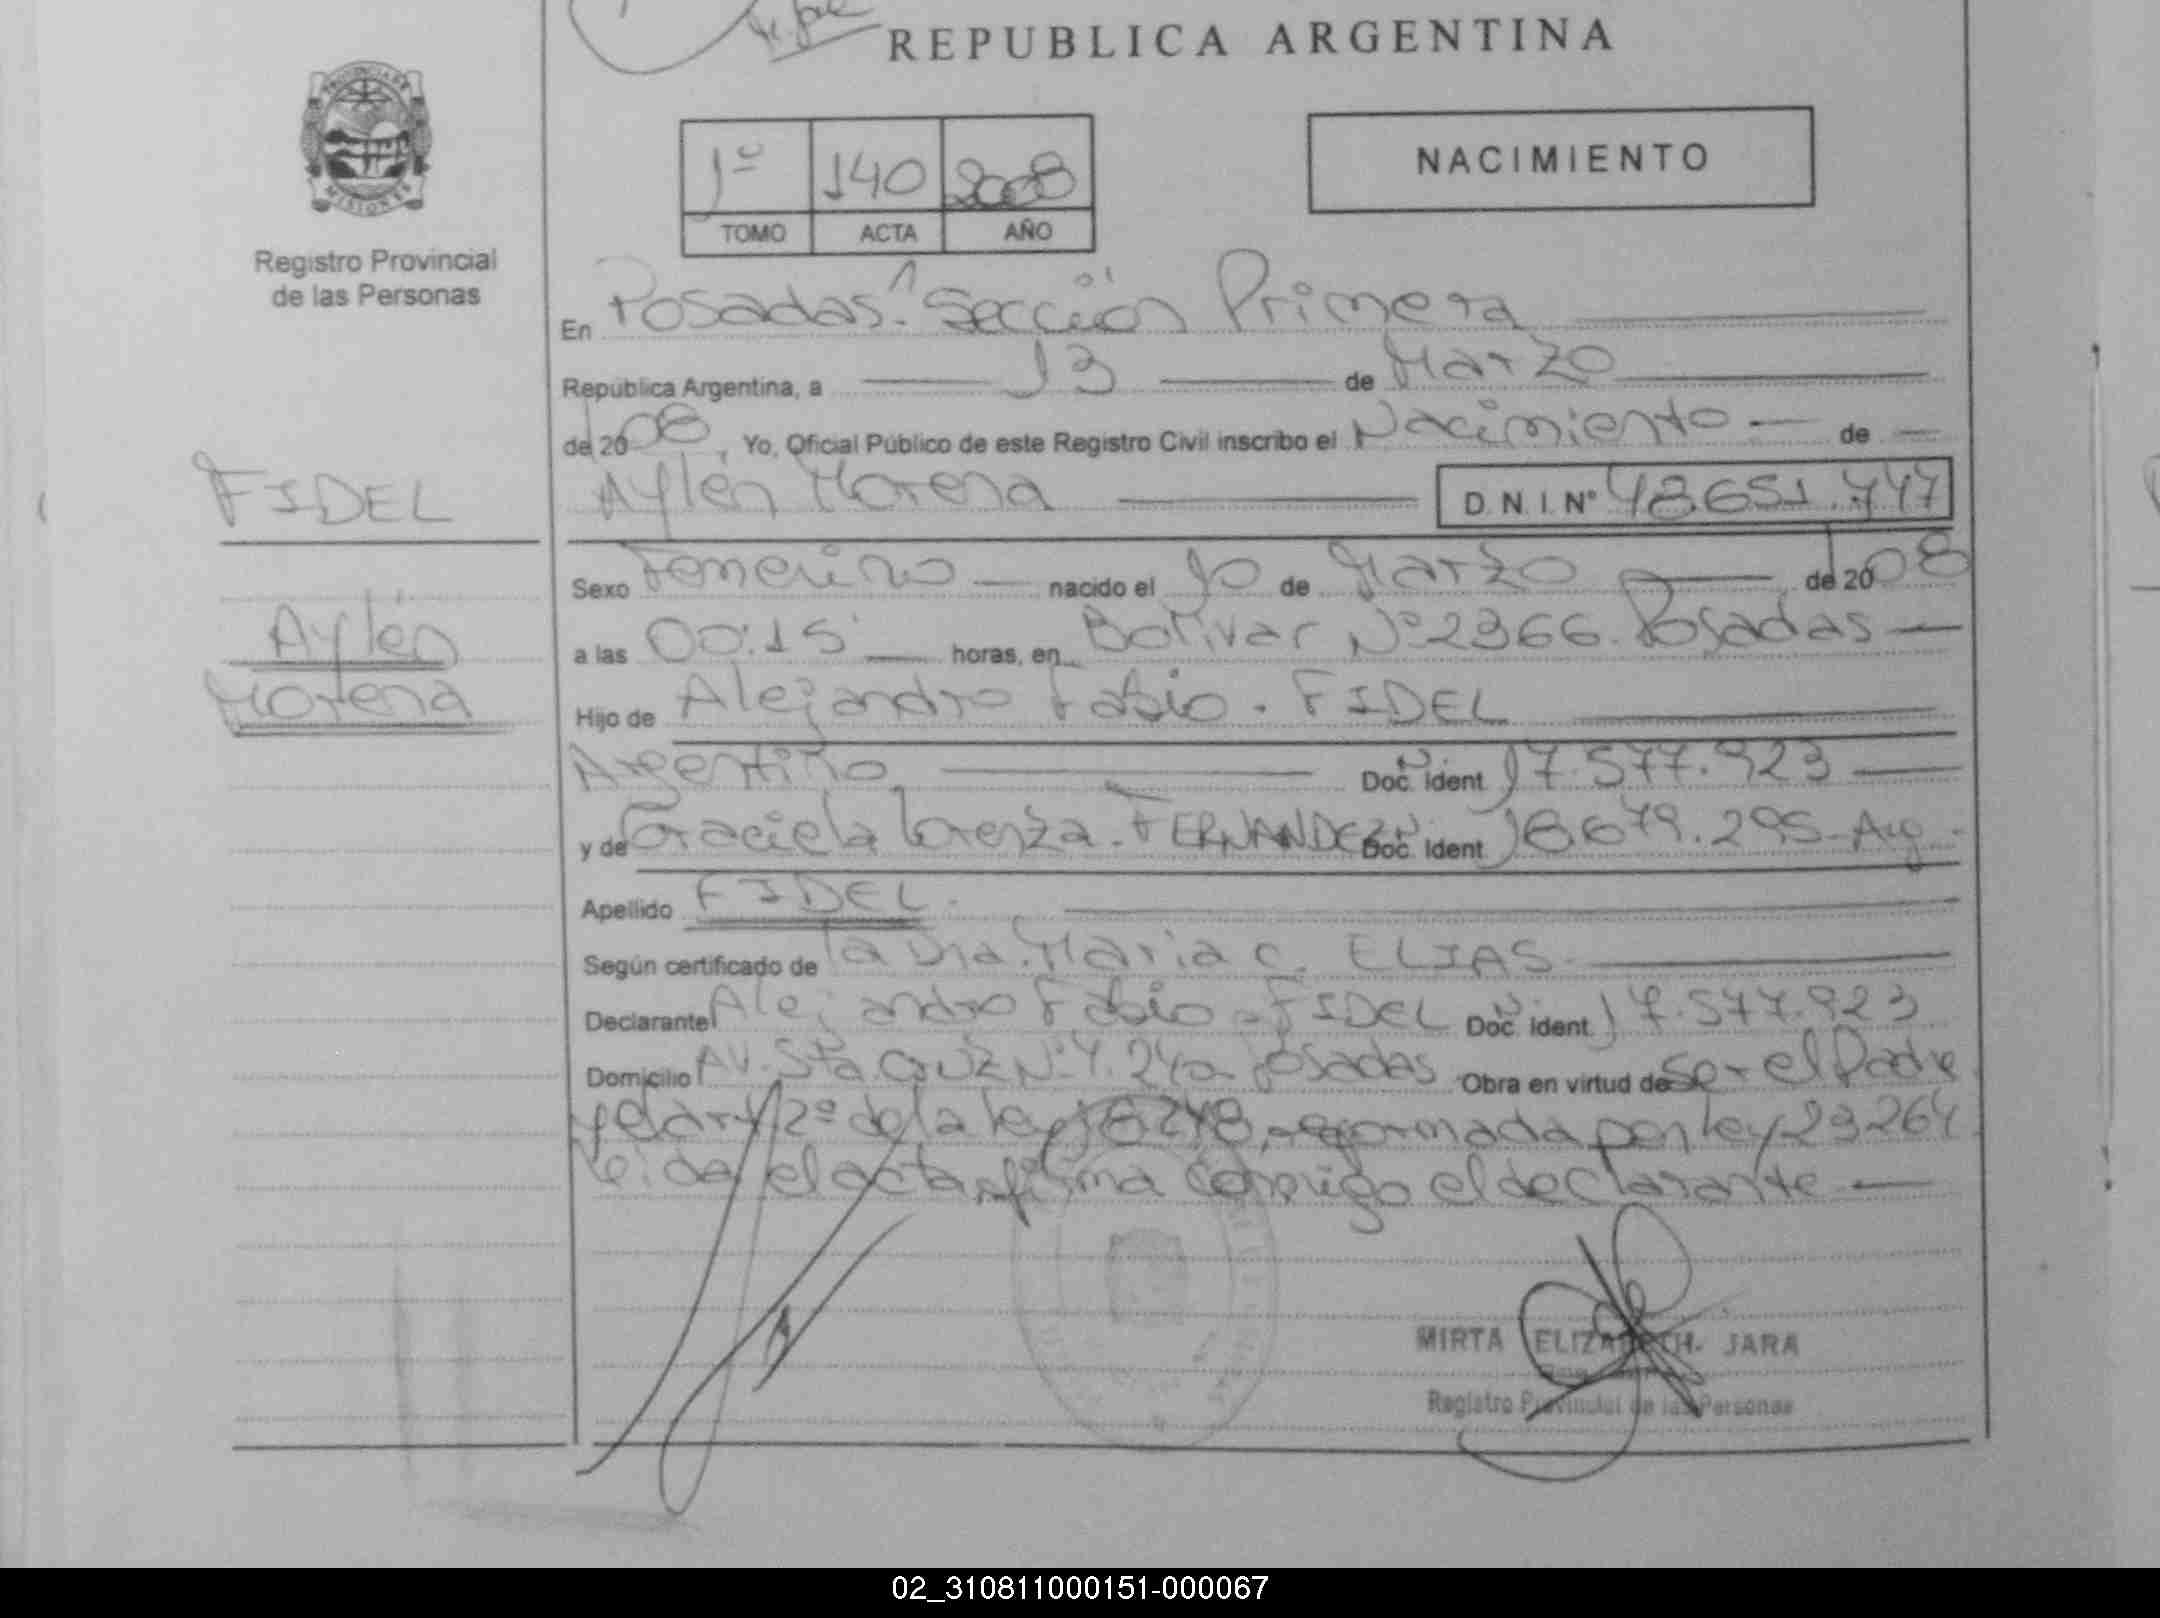 REPUBLICA ARGENTINA
PROVINCIA DE
MISIONES
Registro Provincial
de las Personas
1º 140 2008
TOMO ACTA AÑO
NACIMIENTO
En Posadas. Sección Primera
República Argentina, a 13 de Marzo
de 2008, Yo, Oficial Público de este Registro Civil inscribo el Nacimiento de
Aylén Morena D.N.I. Nº 48.651.747
FIDEL
Aylén
Morena
Sexo Femenino nacido el 10 de Marzo de 2008
a las 00:15 horas, en Bolivar Nº 2366. Posadas
Hijo de Alejandro Fabio. FIDEL
Argentino Doc. Ident. 17.577.923
y de Graciela Lorenza. FERNANDEZ Doc. Ident. 18.679.295 Arg.
Apellido FIDEL.
Según certificado de la Dra. Maria C. ELIAS.
Declarante Alejandro Fabio FIDEL Doc. Ident. 17.577.923
Domicilio AV. Sta Cruz Nº Posadas Obra en virtud de ser el Padre
y el art 2º de la ley 18248, reformada por ley 23264
leida el acta, firma conmigo el declarante
MIRTA ELIZABETH JARA
Registro Provincial de las Personas
02_310811000151-000067